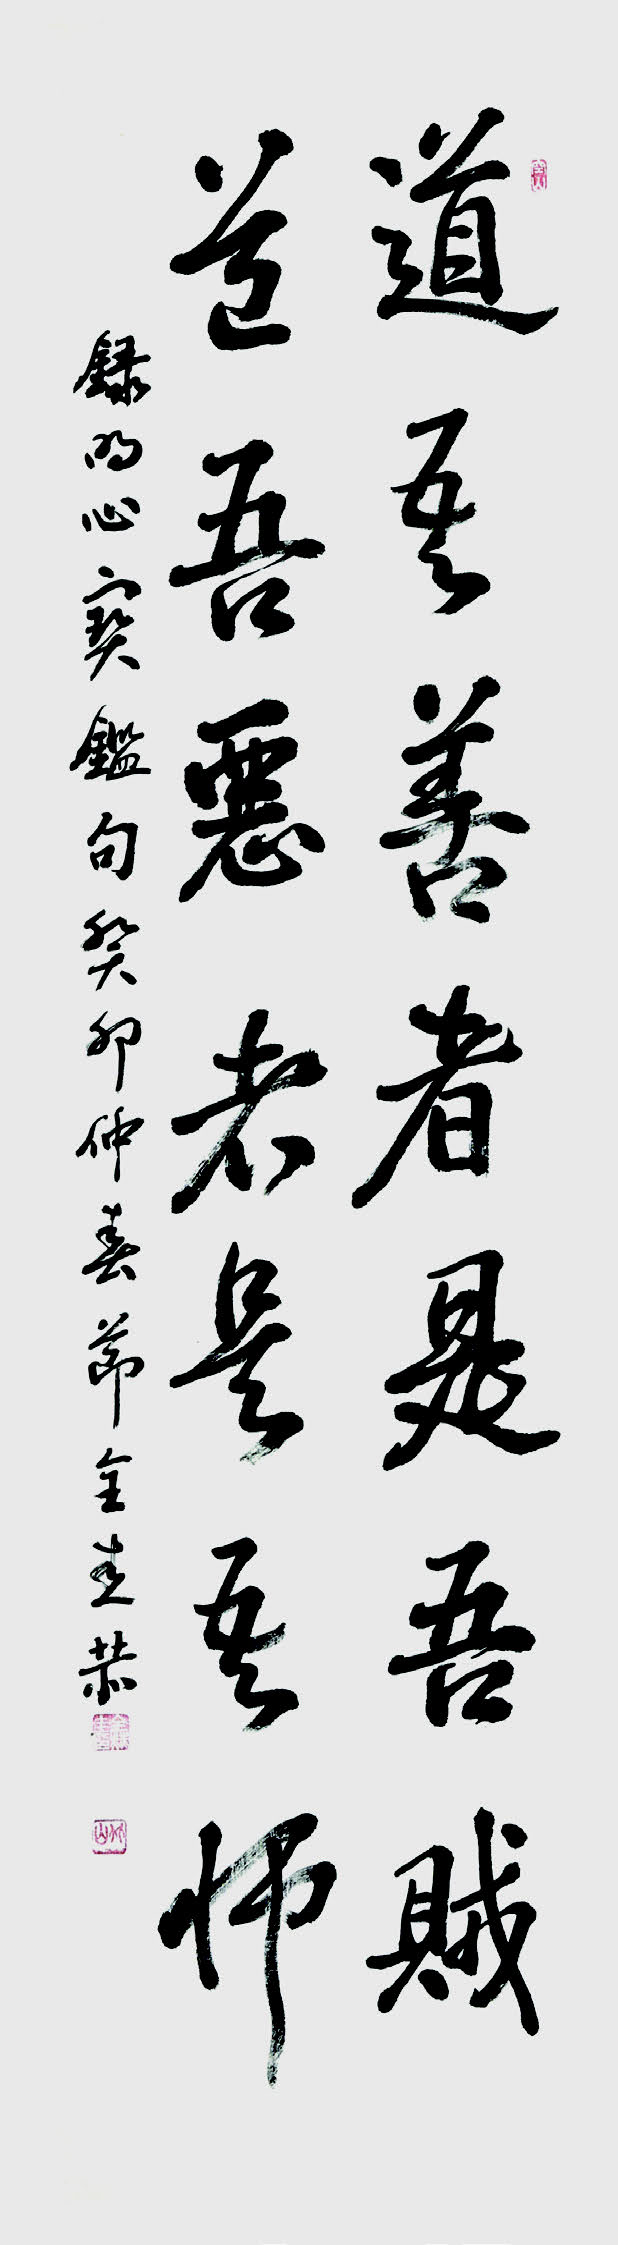 道吾善者是吾賊
道吾惡者是吾師
録明心寶鑑句癸卯仲春節金圭恭